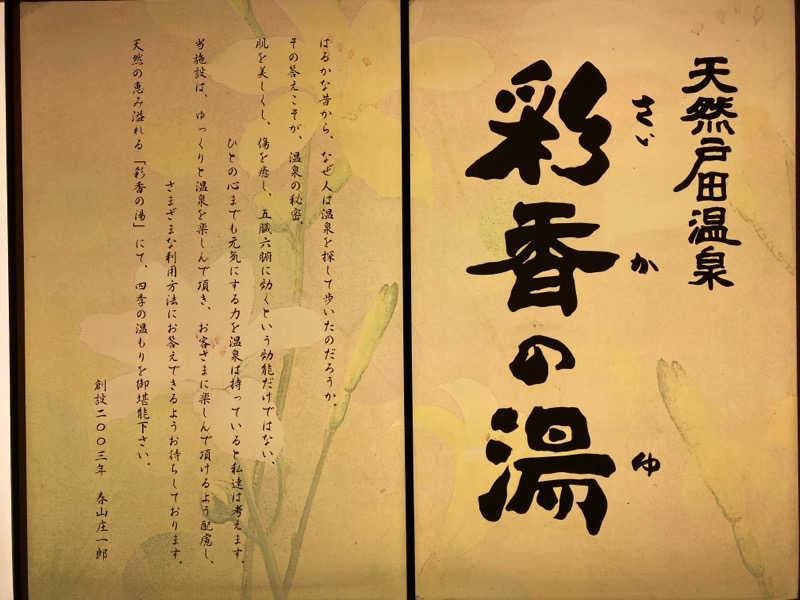 天然戸田温泉
さいかゆ
彩香の湯
はるかな昔から、なぜ人は温泉を探して歩いたのだろうか。
その答えこそが、温泉の秘密。
肌を美しくし、傷を癒し、五臓六腑に効くという効能だけではない、
ひとの心までも元気にする力を温泉は持っていると私達は考えます。
当施設は、ゆっくりと温泉を楽しんで頂き、お客さまに楽しんで頂けるよう配慮し、
さまざまな利用方法にお答えできるようお待ちしております。
天然の恵み溢れる「彩香の湯」にて、四季の温もりを御堪能下さい。
創設二〇〇三年 春山庄一郎